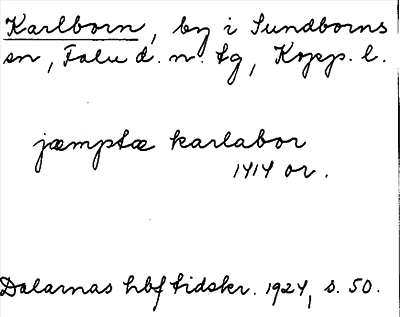 Karlborn, by i Sundborns
sn, Falu d. n. tg, Kopp. l.
jæmptæ karlabor
1414 or.
Dalarnas hbf tidskr. 1924, s. 50.